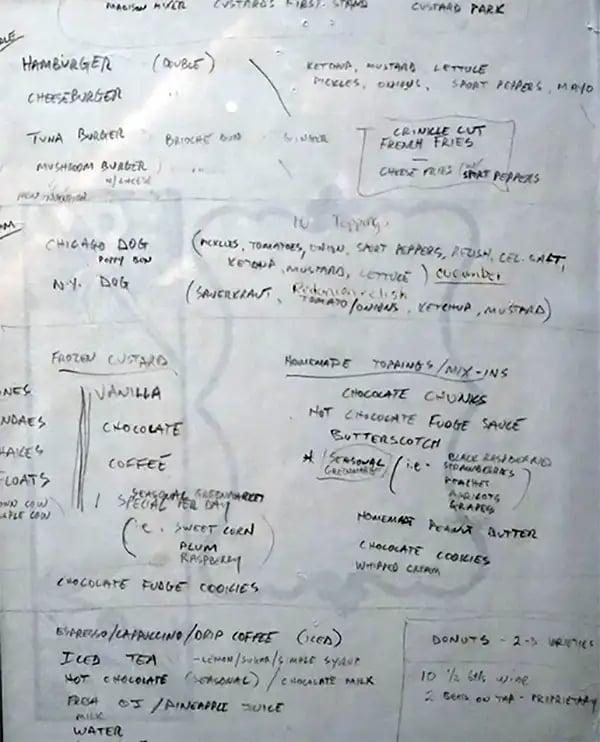 MADISON MIXER CUSTARD'S FIRST STAND CUSTARD PARK
HAMBURGER (DOUBLE) KETCHUP, MUSTARD LETTUCE
PICKLES, ONIONS, SPORT PEPPERS, MAYO
CHEESEBURGER " "
TUNA BURGER BRIOCHE BUN GINGER
CRINKLE CUT
FRENCH FRIES
MUSHROOM BURGER
W/CHEESE
CHEESE FRIES SPORT PEPPERS
NEW INVENTION
10 Toppings
CHICAGO DOG (PICKLES, TOMATOES, ONION, SPORT PEPPERS, RELISH, CEL. SALT,
POPPY BUN KETCHUP, MUSTARD, LETTUCE) CUCUMBER
N.Y. DOG (SAUERKRAUT, Red onion relish
TOMATO/ONIONS, KETCHUP, MUSTARD)
FROZEN CUSTARD
HOMEMADE TOPPINGS/MIX-INS
VANILLA
CHOCOLATE CHUNKS
CHOCOLATE
HOT CHOCOLATE FUDGE SAUCE
BUTTERSCOTCH
COFFEE
* SEASONAL
GREENMARKET
(i.e. BLACK RASPBERRIES
STRAWBERRIES
PEACHES
APRICOTS
GRAPES)
1 SEASONAL GREENMARKET
SPECIAL PER DAY
(i.e. SWEET CORN
PLUM
RASPBERRY)
HOMEMADE PEANUT BUTTER
CHOCOLATE COOKIES
WHIPPED CREAM
CHOCOLATE FUDGE COOKIES
NES
NDAES
HAKES
LOATS
OWN COW
PLE COW
ESPRESSO/CAPPUCCINO/DRIP COFFEE (ICED)
ICED TEA -LEMON/SUGAR/SIMPLE SYRUP
HOT CHOCOLATE (SEASONAL) / CHOCOLATE MILK
FRESH OJ/PINEAPPLE JUICE
MILK
WATER
DONUTS - 2-3 VARIETIES
10 1/2 btls WINE
2 BEERS ON TAP - PROPRIETARY